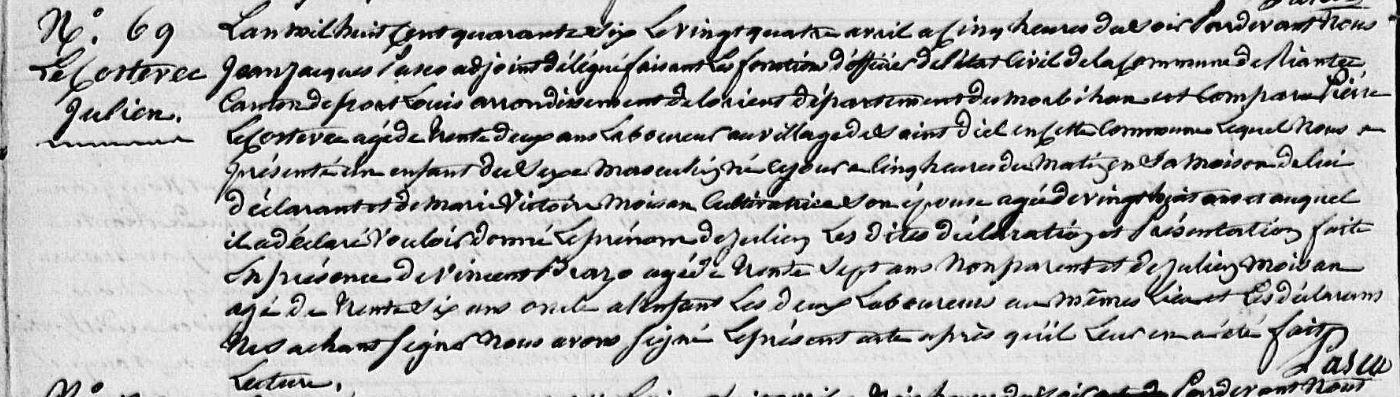 N.° 69
Le Corterec
Julien.
L'an mil huit Cent quarante six Le vingt quatre avril a Cinq heures du soir Pardevant Nous
Jean Jacques Pasco adjoint délégué faisant Les fonction d'officier de l'état Civil de la Commune de Riantec
Canton de port Louis arrondissement de lorient département du morbihan est Comparu Pierre
Le Corterec agé de trente deux ans Laboureur au village de saint diel en Cette Commune Lequel Nous a
présenté un enfant du sexe masculin né Ce jour a Cinq heures du matin en sa maison de lui
déclarant et de Marie Victoire Moisan Cultivatrice son épouse agée de vingt huit ans et auquel
il a déclaré Vouloir donné Le prénom de Julien Les dites déclaration et Présentation faite
En présence de Vincent agé de trente sept ans Non parent et de Julien Moisan
agé de trente six ans oncle a l'enfant Les deux Laboureurs au mêmes Lieu et Les déclarans
Ne sachant signer Nous avons signé Le présent acte après qu'il Leur en a été fait
Lecture.
Pasco
N.°
Pardevant Nous